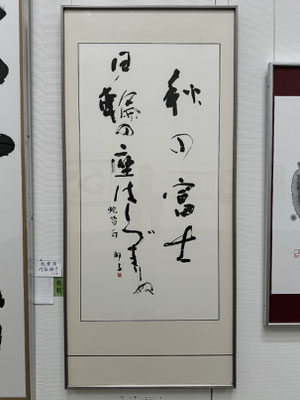 秋の富士
日輪の座はしづまりぬ
蛇笏句